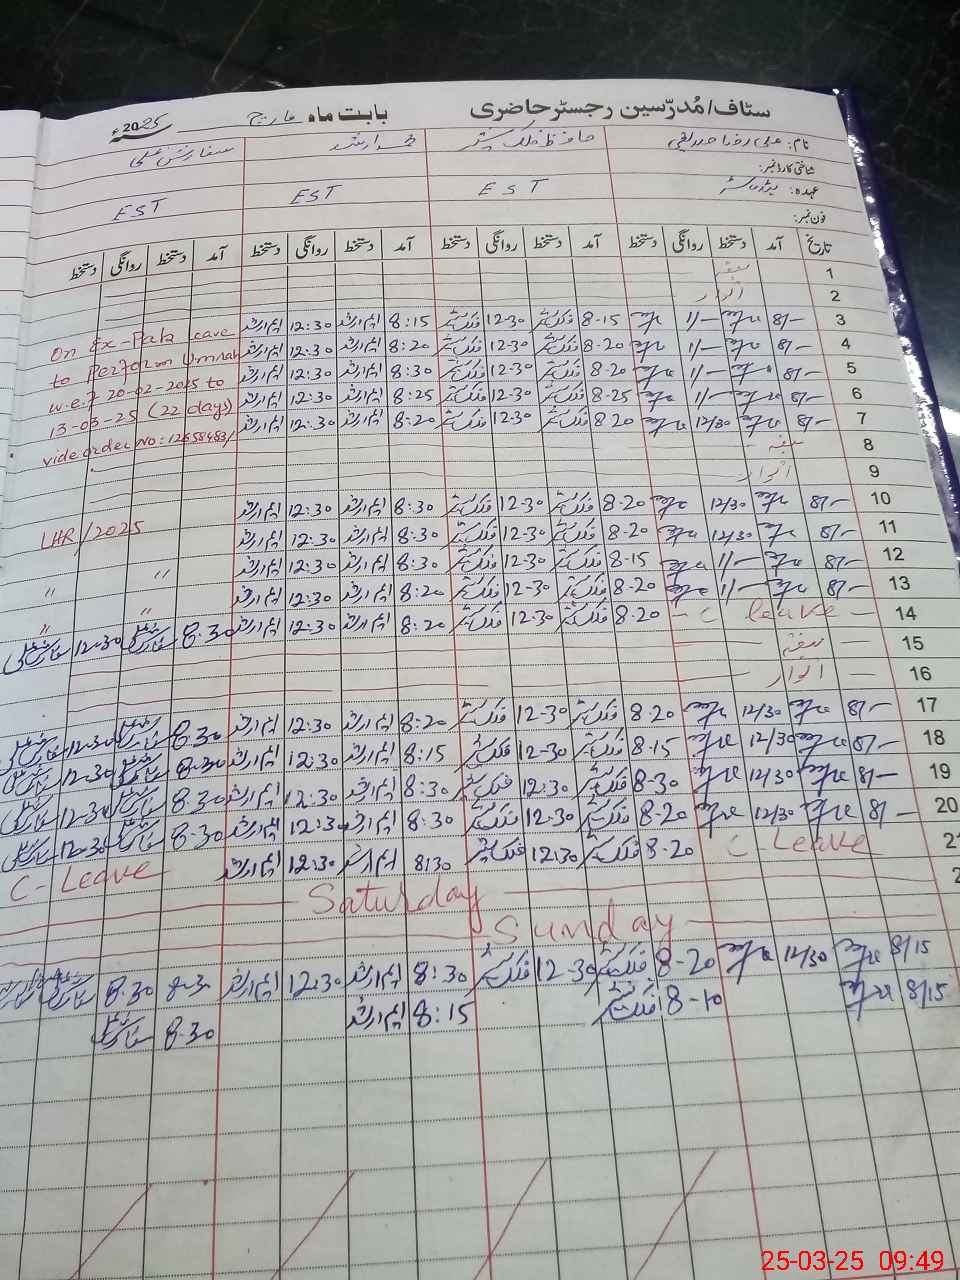 سٹاف/مُدرّسین رجسٹر حاضری بابت ماہ مارچ 2025ء
نام: علی رضا صدیقی حافظ فلک شیر محمد ارشد سفارش علی
شناختی کارڈ نمبر:
عہدہ: ہیڈ ماسٹر EST EST EST
فون نمبر:
تاریخ آمد دستخط روانگی دستخط آمد دستخط روانگی دستخط آمد دستخط روانگی دستخط آمد دستخط روانگی دستخط
1 ہفتہ
2 اتوار
3 8/- 11/- 8-15 فلک شیر 12-30 فلک شیر 8:15 ایم ارشد 12:30 ایم ارشد On Ex-Pak leave
4 8/- 11/- 8-20 فلک شیر 12-30 فلک شیر 8:20 ایم ارشد 12:30 ایم ارشد to Perform Umrah
5 8/- 11/- 8-20 فلک شیر 12-30 فلک شیر 8:30 ایم ارشد 12:30 ایم ارشد w.e.f 20-02-2025 to
6 8/- 11/- 8-25 فلک شیر 12-30 فلک شیر 8:25 ایم ارشد 12:30 ایم ارشد 13-03-25 (22 days)
7 8/- 12/30 8-20 فلک شیر 12-30 فلک شیر 8:20 ایم ارشد 12:30 ایم ارشد vide order No:
8 ہفتہ
9 اتوار
10 8/- 12/30 8-20 فلک شیر 12-30 فلک شیر 8:30 ایم ارشد 12:30 ایم ارشد LHR/2025
11 8/- 12/30 8-20 فلک شیر 12-30 فلک شیر 8:30 ایم ارشد 12:30 ایم ارشد
12 8/- 11/- 8-15 فلک شیر 12-30 فلک شیر 8:30 ایم ارشد 12:30 ایم ارشد " "
13 8/- 11/- 8-20 فلک شیر 12-30 فلک شیر 8:20 ایم ارشد 12:30 ایم ارشد " "
14 C leave 8-20 فلک شیر 12-30 فلک شیر 8:20 ایم ارشد 12:30 ایم ارشد 8.30 سفارش علی 12-30 سفارش علی
15 ہفتہ
16 اتوار
17 8/- 12/30 8-20 فلک شیر 12-30 فلک شیر 8:20 ایم ارشد 12:30 ایم ارشد 8.30 سفارش علی 12-30 سفارش علی
18 8/- 12/30 8-15 فلک شیر 12-30 فلک شیر 8:15 ایم ارشد 12:30 ایم ارشد 8.30 سفارش علی 12-30 سفارش علی
19 8/- 12/30 8-30 فلک شیر 12:30 فلک شیر 8:30 ایم ارشد 12:30 ایم ارشد 8.30 سفارش علی 12-30 سفارش علی
20 8/- 12/30 8-20 فلک شیر 12-30 فلک شیر 8:30 ایم ارشد 12:30 ایم ارشد 8.30 سفارش علی 12-30 سفارش علی
21 C-Leave 8-20 فلک شیر 12:30 فلک شیر 8:30 ایم ارشد 12:30 ایم ارشد C-Leave
2 Saturday
Sunday
8/15 12/30 8-20 فلک شیر 12-30 فلک شیر 8:30 ایم ارشد 12:30 ایم ارشد 8-30 8.30 سفارش علی
8/15 8-10 فلک شیر 8:15 ایم ارشد 8.30 سفارش علی
25-03-25 09:49